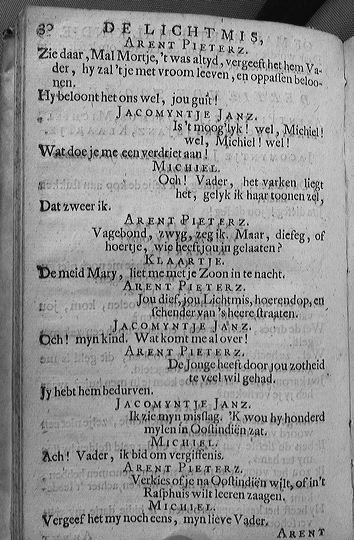 30 DE LICHTMIS,
ARENT PIETERZ.
Zie daar, Mal Mortje, 't was altyd, vergeeft het hem Va-
der, hy zal 't je met vroom leeven, en oppassen beloo-
nen.
Hy beloont het ons wel, jou guit!
JACOMYNTJE JANZ.
Is 't moog'lyk! wel, Michiel!
wel, Michiel! wel!
Wat doe je me een verdriet aan!
MICHIEL.
Och! Vader, het varken liegt
het, gelyk ik haar toonen zel,
Dat zweer ik.
ARENT PIETERZ.
Vagebond, zwyg, zeg ik. Maar, diefeg, of
hoertje, wie heeft jou in gelaaten?
KLAARTJE.
De meid Mary, liet me met je Zoon in te nacht.
ARENT PIETERZ.
Jou dief, jou Lichtmis, hoerendop, en
schender van 's heere straaten.
JACOMYNTJE JANZ.
Och! myn kind. Wat komt me al over!
ARENT PIETERZ.
De Jonge heeft door jou zotheid
te veel wil gehad.
Jy hebt hem bedurven.
JACOMYNTJE JANZ.
Ik zie myn misslag. 'K wou hy honderd
mylen in Oostindiën zat.
MICHIEL.
Ach! Vader, ik bid om vergiffenis.
ARENT PIETERZ.
Verkies of je na Oostindiën wilt, of in 't
Rasphuis wilt leeren zaagen.
MICHIEL.
Vergeef het my noch eens, myn lieve Vader.
ARENT